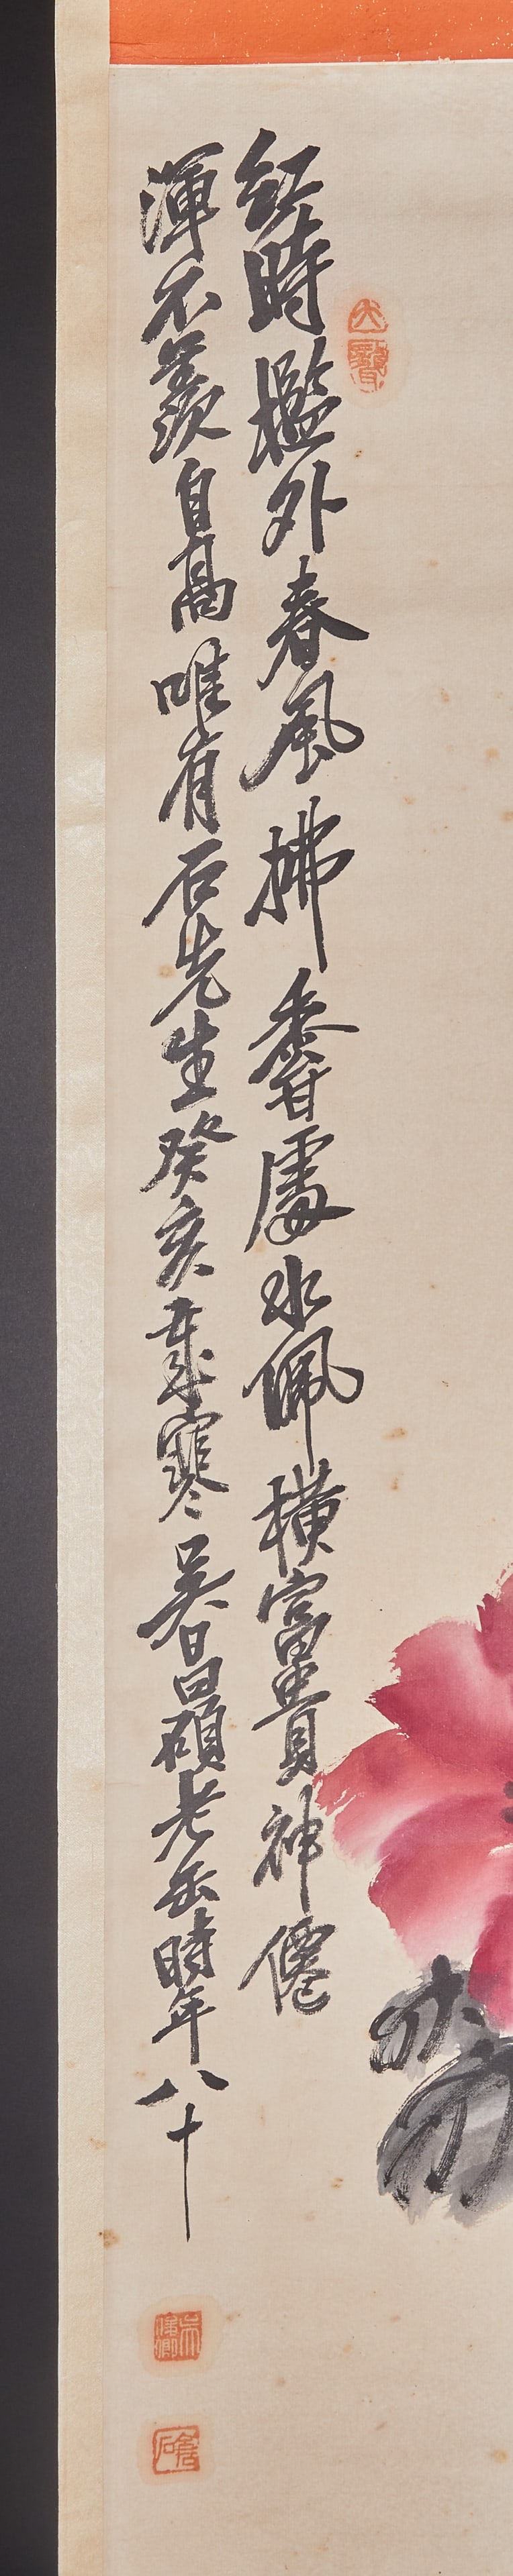 紅時檻外春風拂香處水佩橫富貴神僊
渾不羨自高唯有石先生癸亥歲寒吳昌碩老缶時年八十